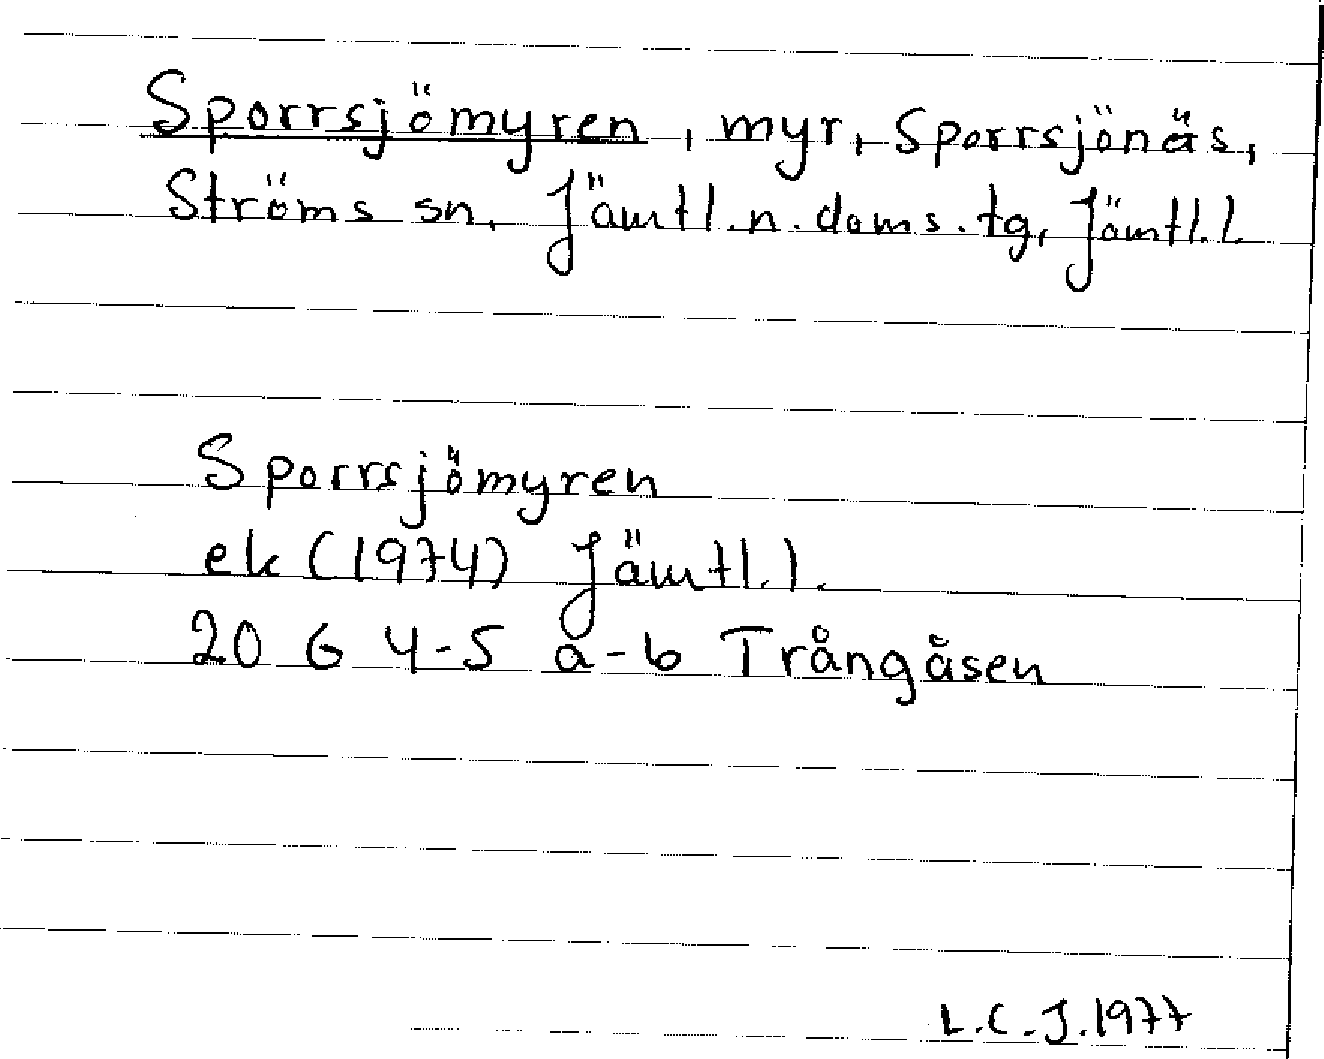 Sporrsjömyren, myr, Sporrsjönäs,
Ströms sn, Jämtl.n.doms.tg, Jämtl.l.
Sporrsjömyren
ek (1974) Jämtl.l.
20 G 4-5 a-b Trångåsen
L.C.J.1977